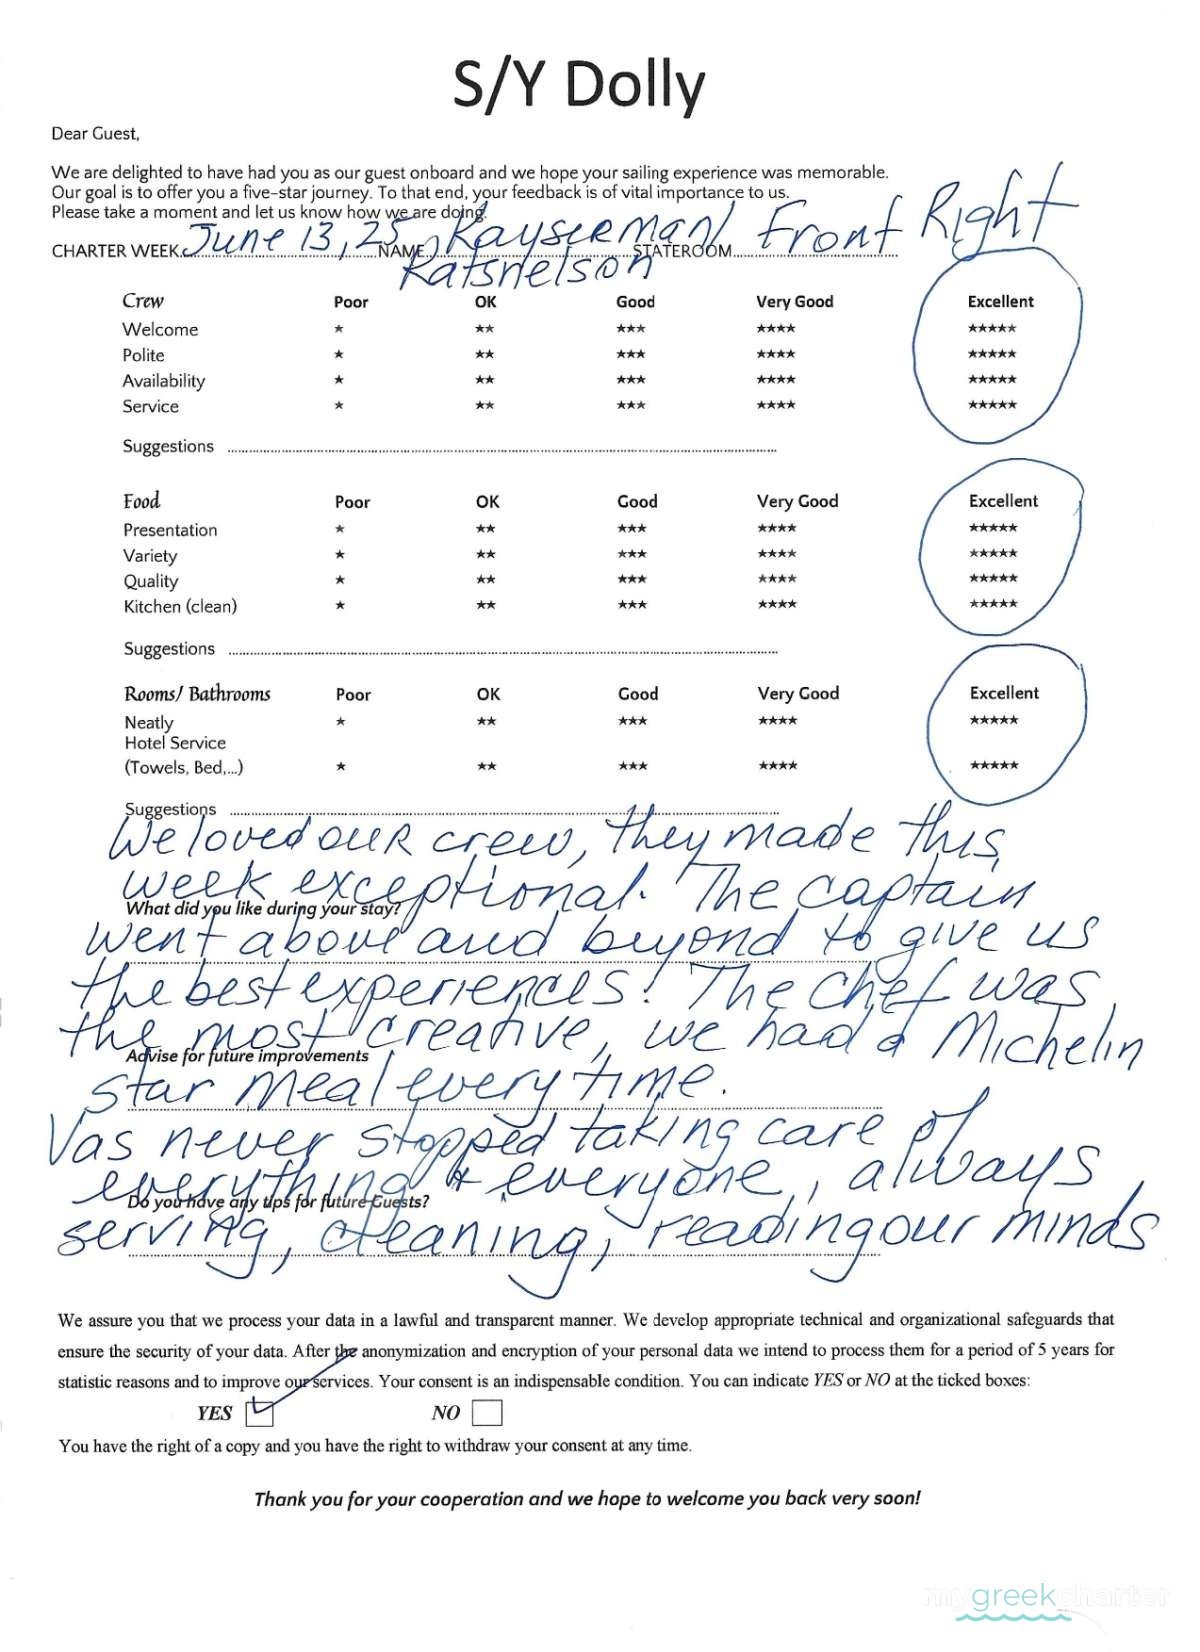 S/Y Dolly
Dear Guest,
We are delighted to have had you as our guest onboard and we hope your sailing experience was memorable.
Our goal is to offer you a five-star journey. To that end, your feedback is of vital importance to us.
Please take a moment and let us know how we are doing.
CHARTER WEEK June 13, 25 NAME Kayserman/ STATEROOM Front Right
Katsnelson
Crew Poor OK Good Very Good Excellent
Welcome ★ ★★ ★★★ ★★★★ ★★★★★
Polite ★ ★★ ★★★ ★★★★ ★★★★★
Availability ★ ★★ ★★★ ★★★★ ★★★★★
Service ★ ★★ ★★★ ★★★★ ★★★★★
Suggestions
Food Poor OK Good Very Good Excellent
Presentation ★ ★★ ★★★ ★★★★ ★★★★★
Variety ★ ★★ ★★★ ★★★★ ★★★★★
Quality ★ ★★ ★★★ ★★★★ ★★★★★
Kitchen (clean) ★ ★★ ★★★ ★★★★ ★★★★★
Suggestions
Rooms/ Bathrooms Poor OK Good Very Good Excellent
Neatly ★ ★★ ★★★ ★★★★ ★★★★★
Hotel Service
(Towels, Bed,...) ★ ★★ ★★★ ★★★★ ★★★★★
Suggestions
We loved our crew, they made this
week exceptional. The captain
What did you like during your stay?
went above and beyond to give us
the best experiences! The chef was
the most creative, we had a Michelin
Advise for future improvements
star meal every time.
Vas never stopped taking care of
everything & everyone, always
Do you have any tips for future Guests?
serving, cleaning, reading our minds
We assure you that we process your data in a lawful and transparent manner. We develop appropriate technical and organizational safeguards that
ensure the security of your data. After the anonymization and encryption of your personal data we intend to process them for a period of 5 years for
statistic reasons and to improve our services. Your consent is an indispensable condition. You can indicate YES or NO at the ticked boxes:
YES NO
You have the right of a copy and you have the right to withdraw your consent at any time.
Thank you for your cooperation and we hope to welcome you back very soon!
mygreekcharter